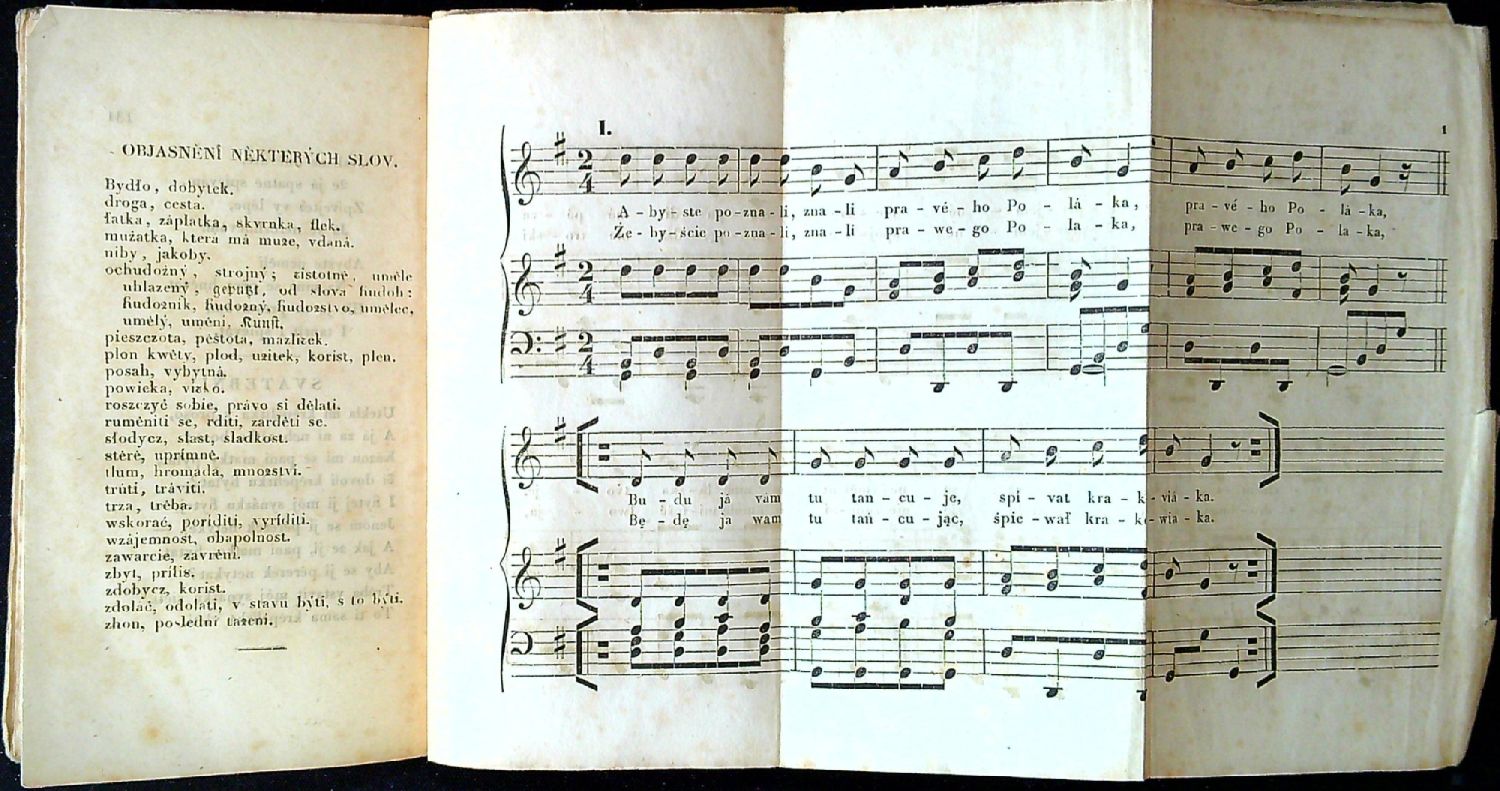 OBJASNĚNÍ NĚKTERÝCH SLOV.
Bydło, dobytek.
droga, cesta.
łatka, záplatka, skvrnka, flek.
mużatka, která má muže, vdaná.
niby, jakoby.
ochudożny, strojný; čistotně, uměle
uhlazený, geputzt, od slova hudoh:
hudożnik, hudożny, hudożstvo, umělec,
umělý, umění, Kunst.
pieszczota, pěstota, mazlíček.
plon kwěty, plod, užitek, kořist, plen.
posah, vybytná.
powieka, víčko.
roszczyć sobie, právo si dělati.
ruměniti se, rditi, zarděti se.
słodycz, slast, sladkost.
štěrě, upřímně.
tlum, hromáda, množství.
trúti, tráviti.
trza, třeba.
wskorać, poříditi, vyříditi.
wzájemnost, obapolnost.
zawarcie, zavření.
zbyt, příliš.
zdobycz, kořist.
zdolać, odolati, v stavu býti, s to býti.
zhon, poslední tažení.
I.
1
A - by - ste po - zna - li, zna - li pra - vé - ho Po - lá - ka, pra - vé - ho Po - lá - ka,
Że - by - ście po - zna - li, zna - li pra - we - go Po - la - ka, pra - we - go Po - la - ka,
Bu - du já vám tu tan - cu - je, spi - vat kra - k - viá - ka.
Bę - dę ja wam tu tań - cu - jąc, śpie - wał kra - ko - wia - ka.